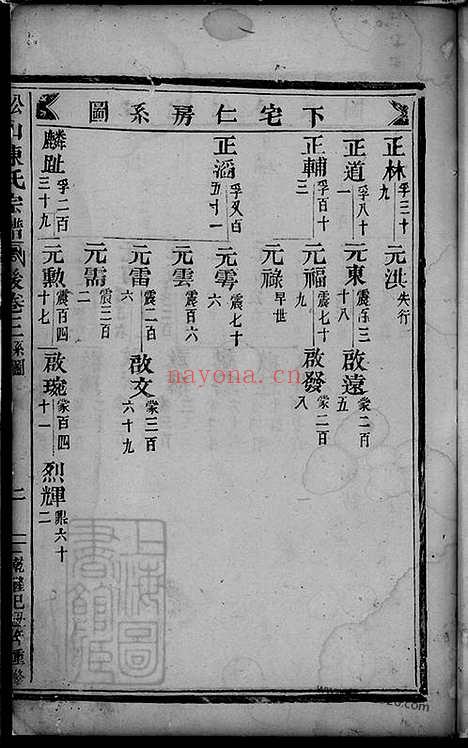 下宅仁房系圖
正林 孚三十九 元洪 失行
正道 孚八十一 元東 震 三十八 啟遠 蒙二百五
正輔 孚百十三 元福 震七十九 啟發 蒙二百八
元祿 早世
正滔 孚又百五十一 元雩 震七十六
元雲 震百六
元雷 震二百六 啟文 蒙三百六十九
元需 震三百二
麟趾 孚二百三十九 元勲 震百四十七 啟琬 蒙百四十一 烈輝 鼎六十二
松山陳氏宗譜 後卷二 系圖
二
乾隆 重修
上海圖書館藏
nayona.cn